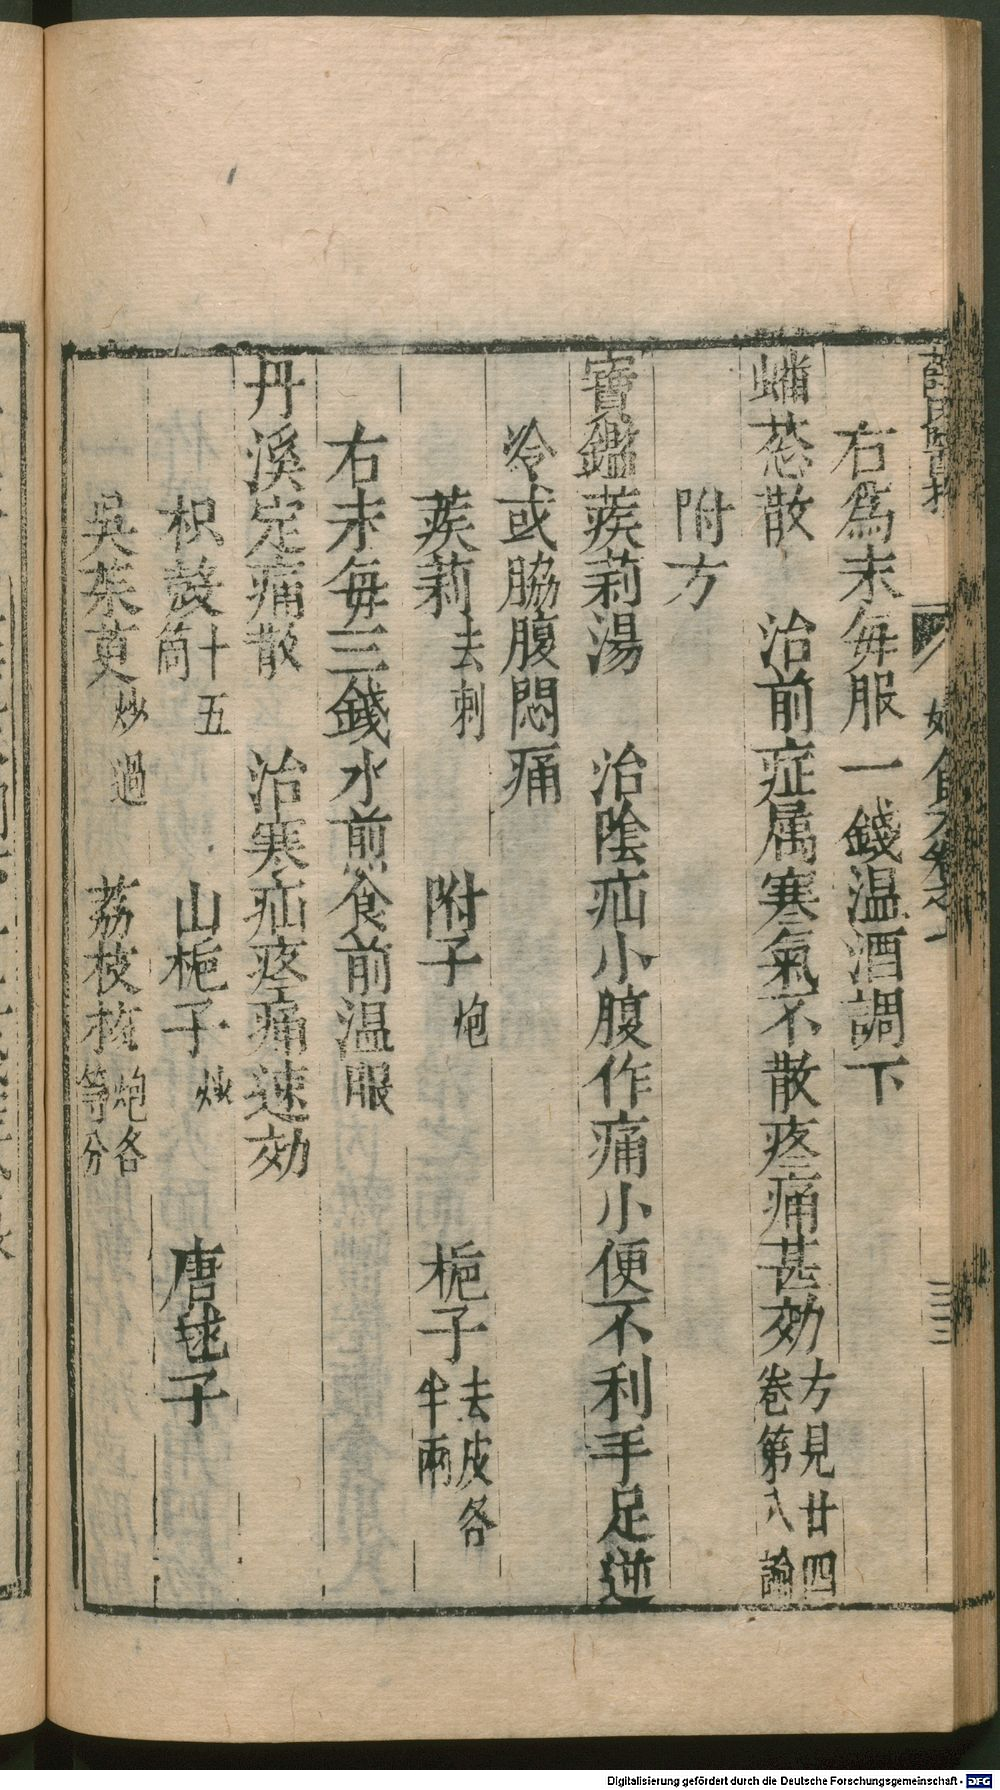 右為末每服一錢温酒調下
蟠葱散　治前症属寒氣不散疼痛甚効方見廿四卷第八論
附方
寶鑑蒺莉湯　治陰疝小腹作痛小便不利手足逆
冷或脇腹悶痛
蒺莉去刺　附子炮　梔子去皮各半兩
右末每三錢水煎食前温服
丹溪定痛散　治寒疝疼痛速効
枳殼十五箇　山梔子炒　唐毬子
吳茱萸炒過　荔枝核炮各等分
Digitalisierung gefördert durch die Deutsche Forschungsgemeinschaft - DFG